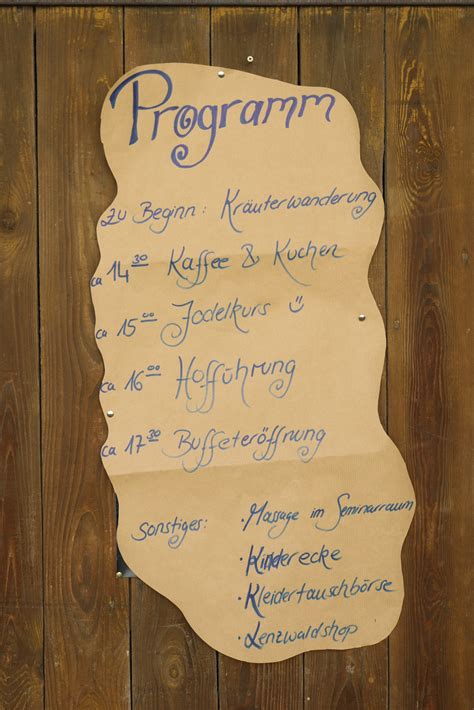 Programm
Zu Beginn: Kräuterwanderung
ca 14 30 Kaffee & Kuchen
ca 15 00 Jodelkurs ☺
ca 16 00 Hofführung
ca 17 30 Buffeteröffnung
Sonstiges: · Massage im Seminarraum
· Kinderecke
· Kleidertauschbörse
· Lenzwaldshop